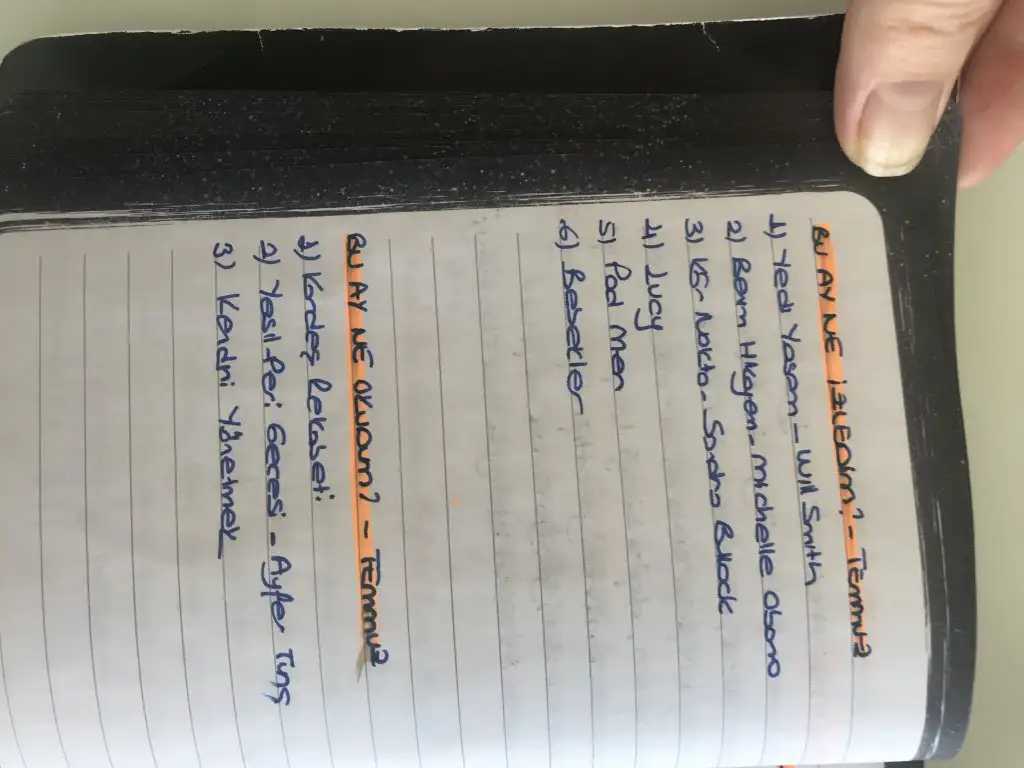 BU AY NE İZLEDİM? - TEMMUZ
1) Yedi Yaşam - Will Smith
2) Benim Hikayem - michelle Obama
3) Kör Nokta - Sandra Bullock
4) Lucy
5) Pad Men
6) Bebekler
BU AY NE OKUDUM? - TEMMUZ
1) Kardeş Rekabeti
2) Yeşil Peri Gecesi - Ayfer Tunç
3) Kendini Yönetmek